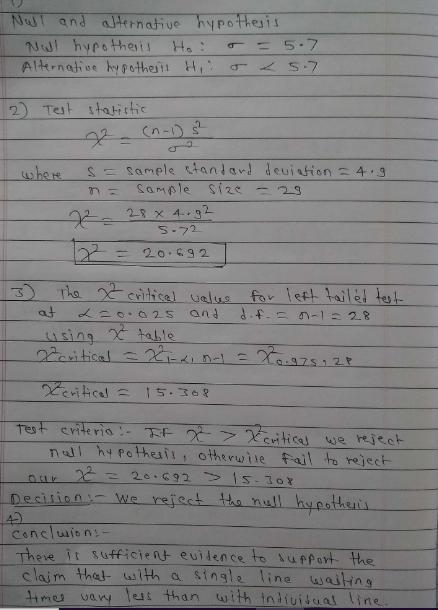 1)
Null and alternative hypothesis
Null hypothesis H₀ : σ = 5.7
Alternative hypothesis H₁ : σ < 5.7
2) Test statistic
χ² = (n-1) s² / σ²
where s = sample standard deviation = 4.9
n = sample size = 29
χ² = 28 × 4.9² / 5.7²
χ² = 20.692
3) The χ² critical value for left tailed test
at α = 0.025 and d.f. = n-1 = 28
using χ² table
χ²critical = χ²1-α, n-1 = χ²0.975, 28
χ²critical = 15.308
Test criteria :- If χ² > χ²critical we reject
null hypothesis, otherwise fail to reject
our χ² = 20.692 > 15.308
Decision :- We reject the null hypothesis
4)
Conclusion :-
There is sufficient evidence to support the
claim that with a single line waiting
times vary less than with individual line.